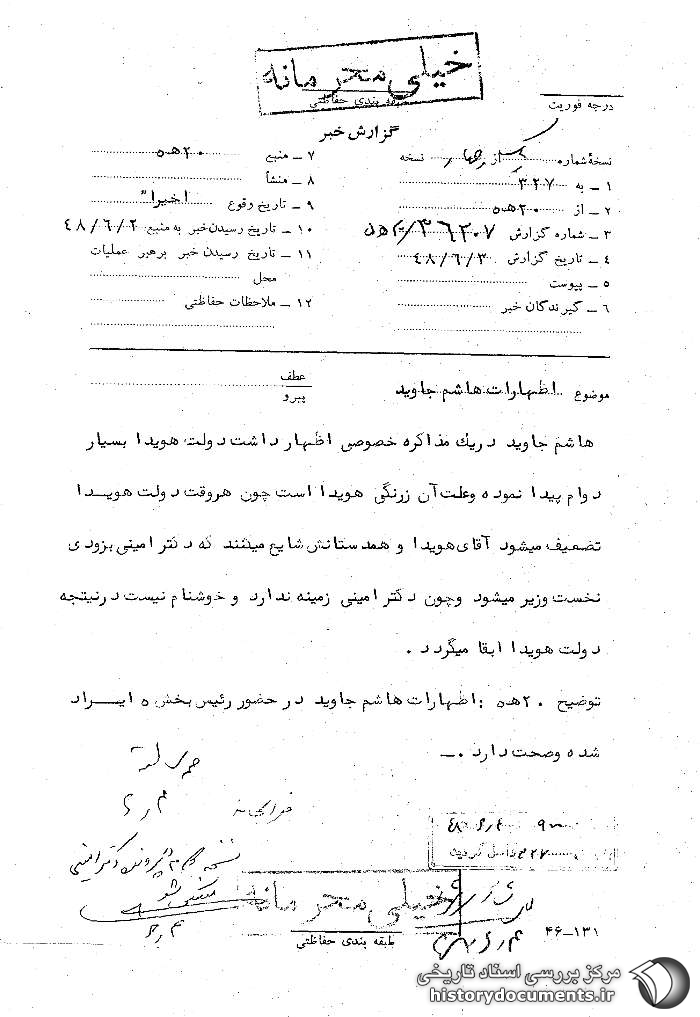 خیلی محرمانه
طبقه بندی حفاظتی
درجه فوریت
گزارش خبر
نسخه شماره یک از چهار نسخه
۱ – به ۳۲۷
۲ – از ۲۰ه‍۵
۳ – شماره گزارش ۳۶۲۰۷
۴ – تاریخ گزارش ۴۸/۶/۳
۵ – پیوست
۶ – گیرندگان خبر
۷ – منبع ۲۰ه‍۵
۸ – منشأ
۹ – تاریخ وقوع اخیرا"
۱۰ – تاریخ رسیدن خبر به منبع ۴۸/۶/۲
۱۱ – تاریخ رسیدن خبر برهبر عملیات
محل
۱۲ – ملاحظات حفاظتی
موضوع اظهارات هاشم جاوید
عطف
پیرو
هاشم جاوید دریك مذاکره خصوصی اظهار داشت دولت هویدا بسیار
دوام پیدا نموده وعلت آن زرنگی هویدا است چون هروقت دولت هویدا
تضعیف میشود آقای هویدا و همدستانش شایع میکنند که دکتر امینی بزودی
نخست وزیر میشود وچون دکتر امینی زمینه ندارد و خوشنام نیست درنیتجه
دولت هویدا ابقا میگردد .
توضیح ۲۰ه‍۵ : اظهارات هاشم جاوید در حضور رئیس بخش ۵ ایراد
شده وصحت دارد .–
نسخه پرونده دکتر امینی
منعکس شود
خیلی محرمانه
طبقه بندی حفاظتی
۴۶–۱۳۱
مرکز بررسی اسناد تاریخی
historydocuments.ir